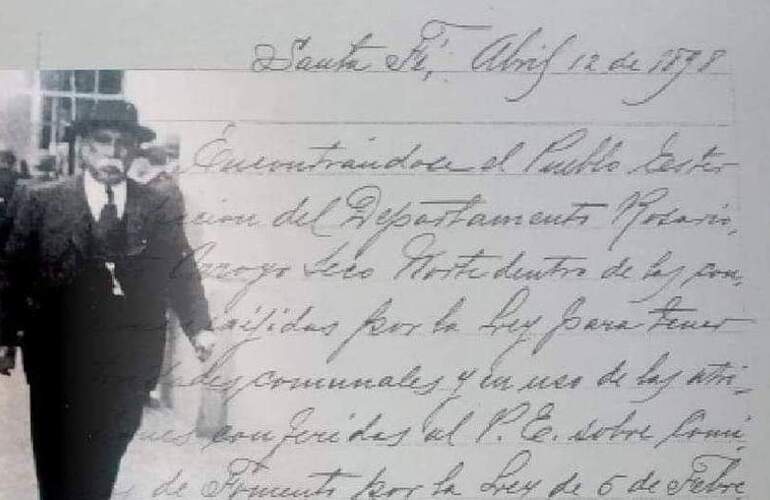 Santa Fé, Abril 12 de 1898
Encontrándose el Pueblo Ester
del Departamento Rosario,
Arroyo Seco Norte dentro de las con,
exijidas por la Ley para tener
comunales y en uso de las atri,
conferidas al P. E. sobre Comi,
de Fomento por la Ley de 5 de Febre